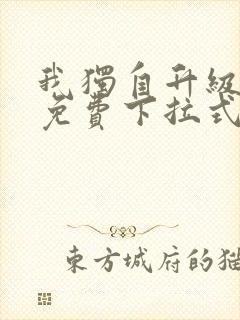 我獨自升級
免費下拉式
東方城府的猫